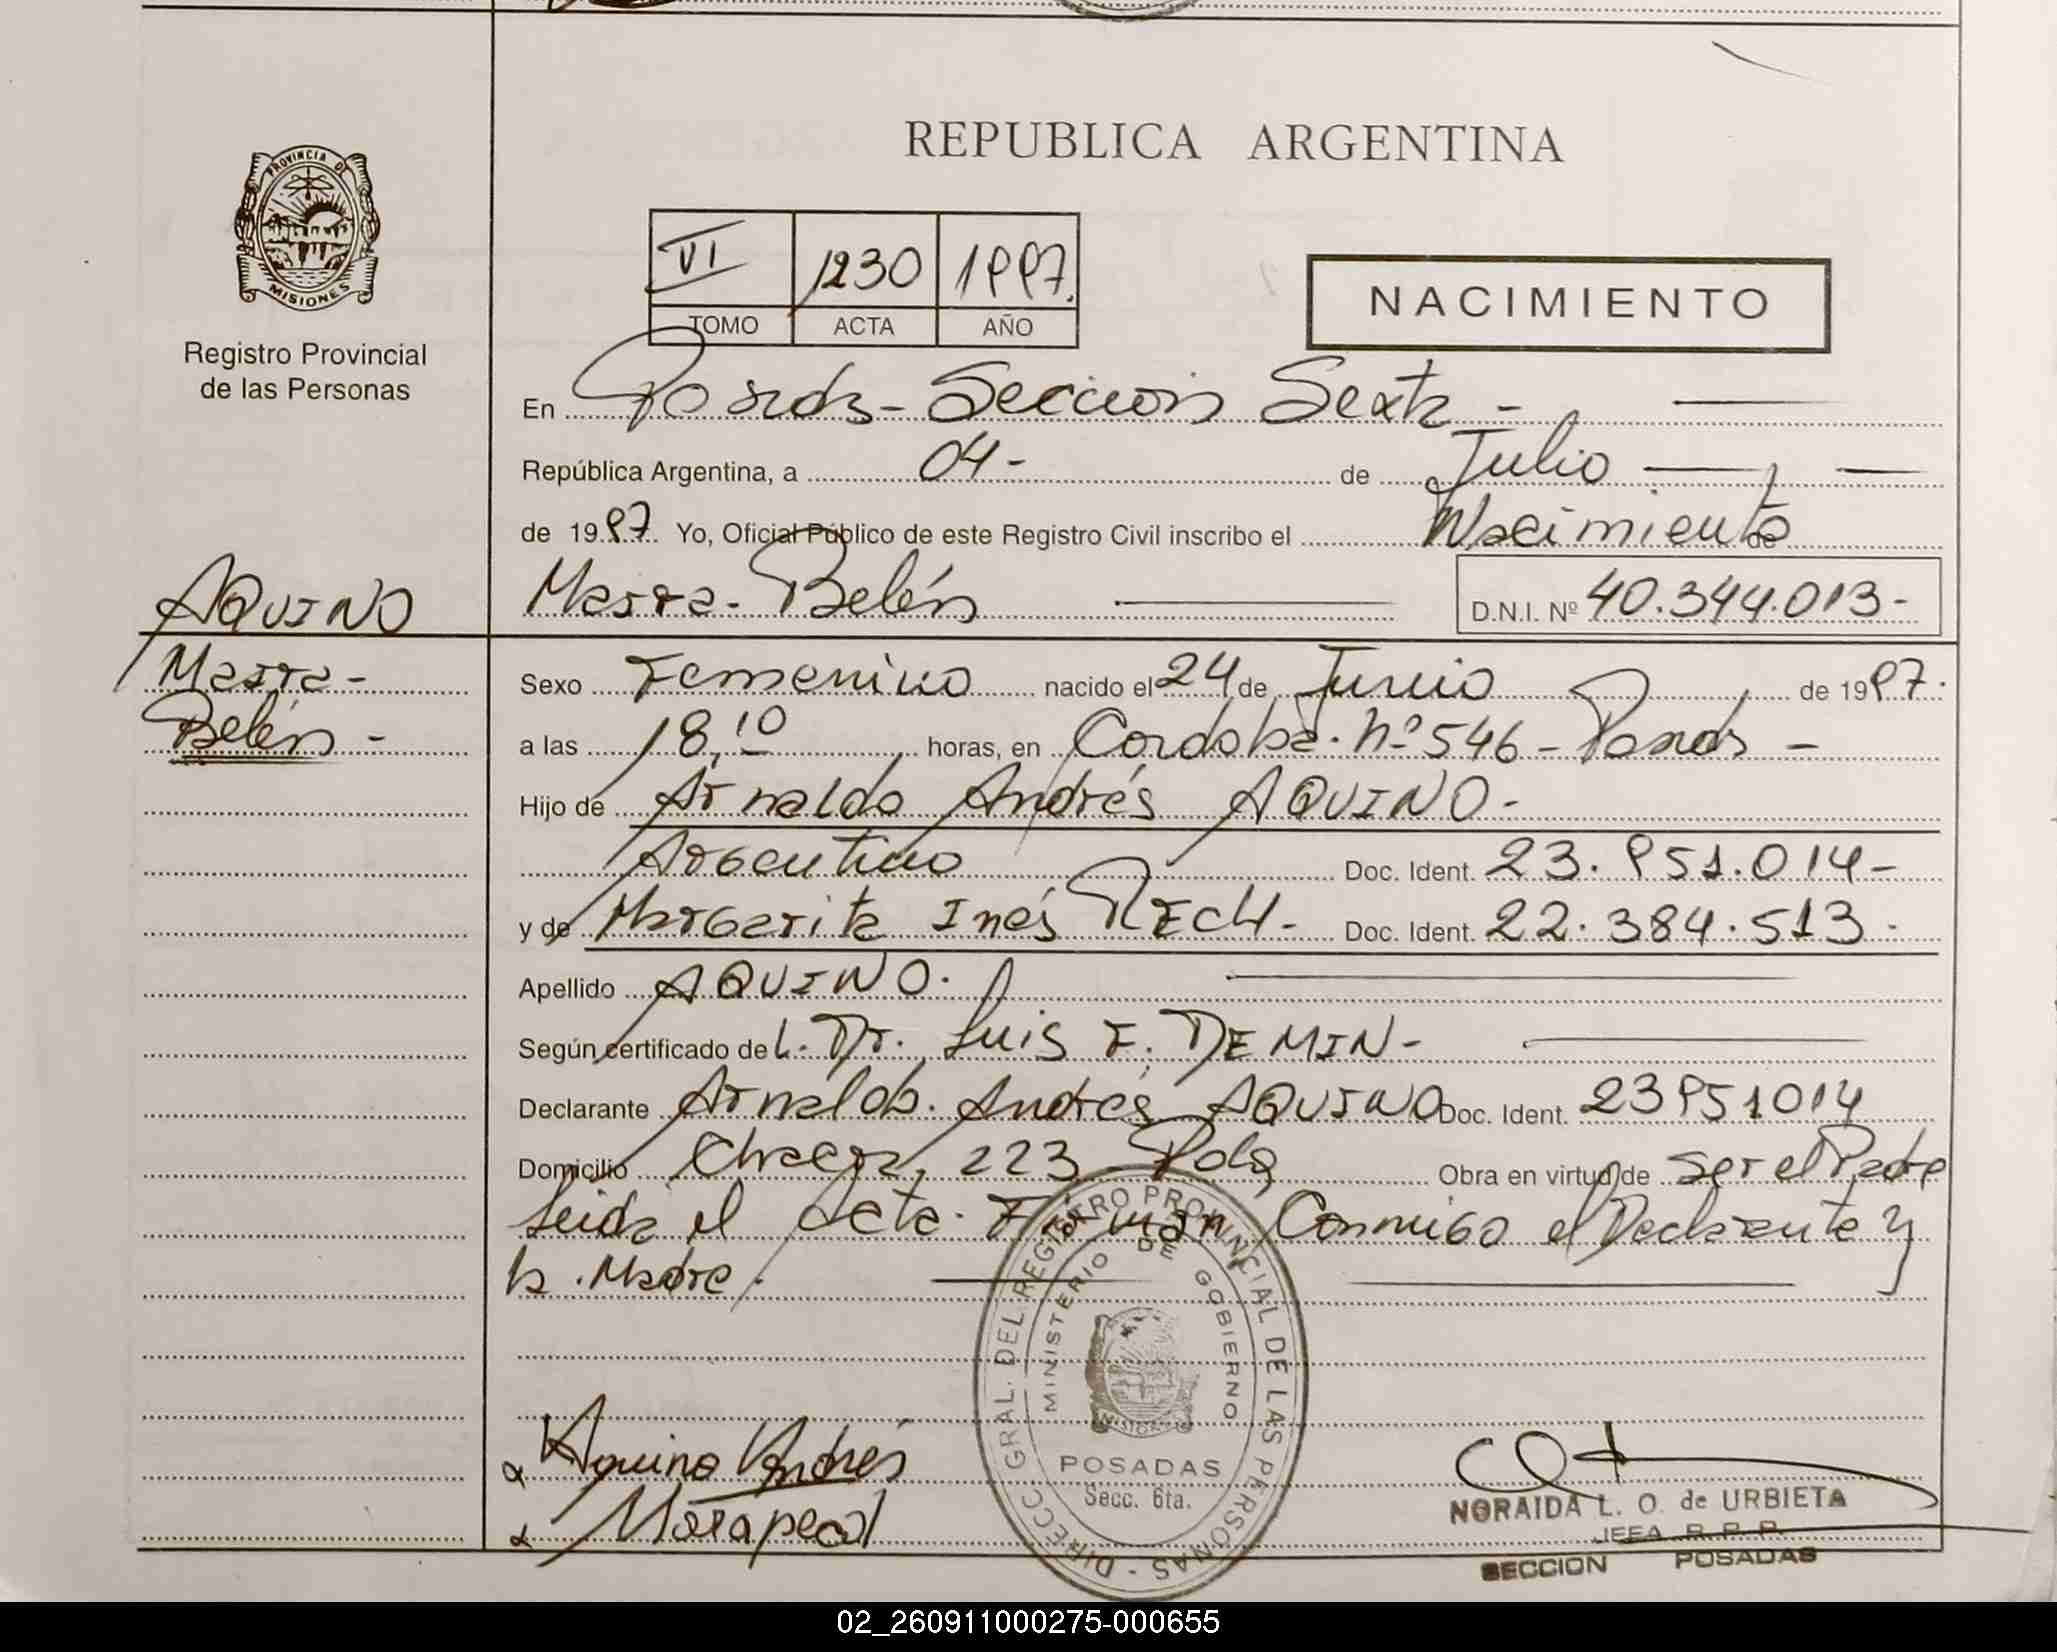 PROVINCIA DE
MISIONES
Registro Provincial
de las Personas
REPUBLICA ARGENTINA
VI 1230 1997.
TOMO ACTA AÑO
NACIMIENTO
En Posadas - Sección Sexta -
República Argentina, a 04 - de Julio
de 1997 Yo, Oficial Público de este Registro Civil inscribo el Nacimiento de
AQUINO
Belén D.N.I. Nº 40.344.013 -
Belén -
Sexo Femenino nacido el 24 de Junio de 1997.
a las 18,10 horas, en Cordoba. Nº 546 - Posadas -
Hijo de Arnaldo Andrés AQUINO -
Argentino Doc. Ident. 23.951.014 -
y de Margarita Inés RECH - Doc. Ident. 22.384.513 -
Apellido AQUINO.
Según certificado del. Dr. Luis F. DEMIN -
Declarante Arnaldo. Andrés AQUINO Doc. Ident. 23951014
Domicilio 223 Obra en virtud de ser el Padre
Leida el Acta. Firman Conmigo el Declarante y
la Madre.
DIRECC. GRAL. DEL REGISTRO PROVINCIAL DE LAS PERSONAS -
MINISTERIO DE GOBIERNO
MISIONES
POSADAS
Secc. 6ta.
Aquino Andrés
NORAIDA L. O. de URBIETA
JEFA R. P. P.
SECCION POSADAS
02_260911000275-000655